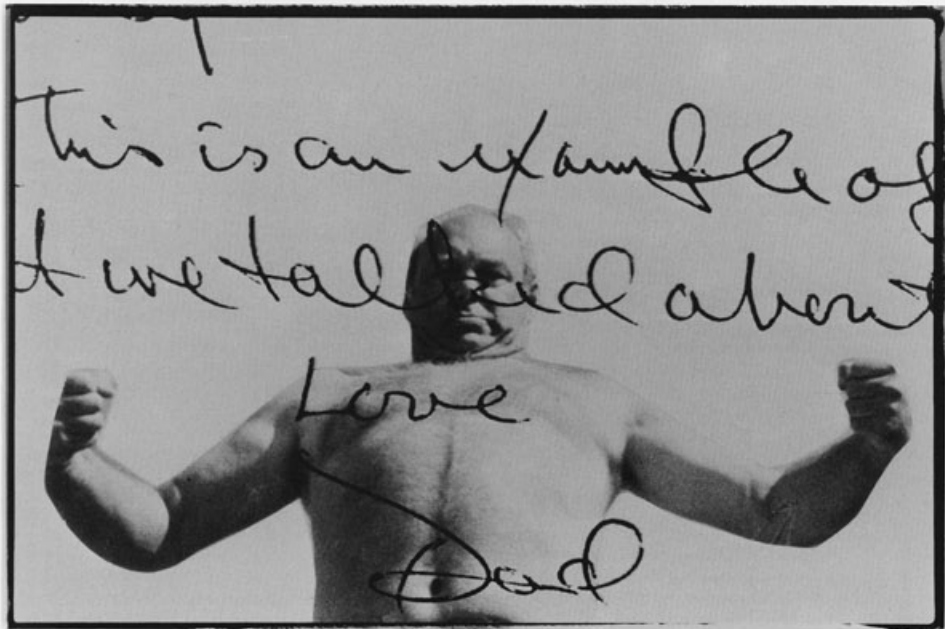 This is an example of
t we talked about
Love
Dad